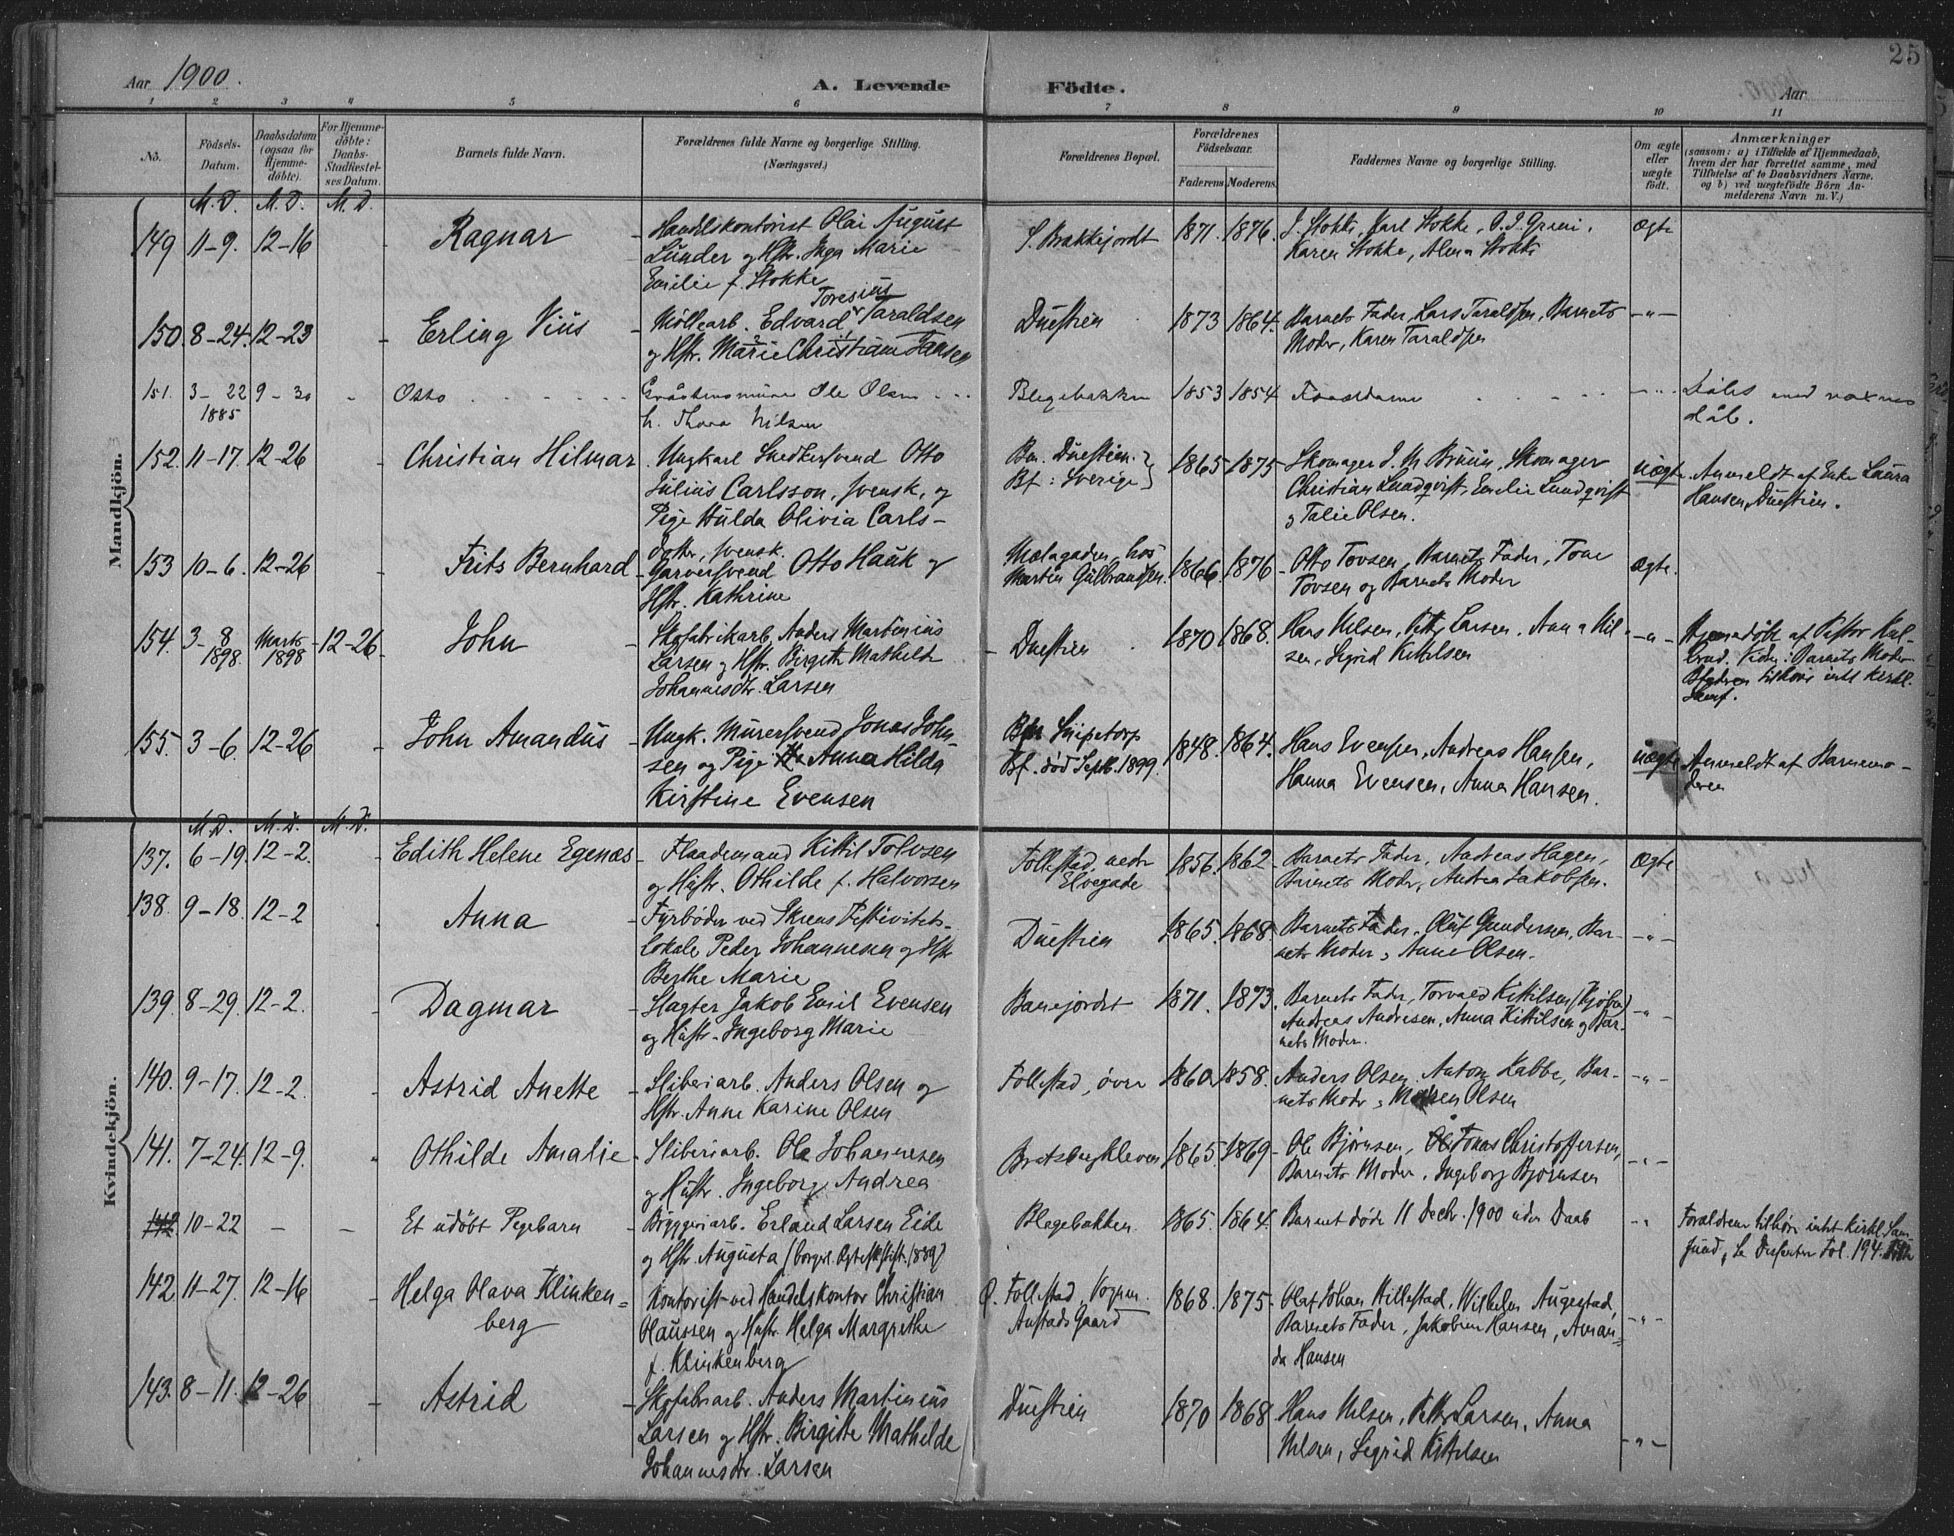 25
Aar 1900.
A. Levende Födte.
Aar
1 2 3 4 5 6 7 8 9 10 11
No. Födsels-Datum. Daabsdatum (ogsaa for Hjemme-döbte). For Hjemme-döbte: Daabs-Stadfæstel-ses Datum. Barnets fulde Navn. Forældrenes fulde Navne og borgerlige Stilling. (Næringsvei.) Forældrenes Bopæl. Forældrenes Födselsaar. Faderens Moderens. Faddernes Navne og borgerlige Stilling. Om ægte eller uægte födt. Anmærkninger
(saasom: a) i Tilfælde af Hjemmedaab,
hvem der har forrettet samme, med
Tilföielse af to Daabsvidners Navne,
og b) ved uægtefödte Börn An-
melderens Navn m. V.)
Mandkjön.
M. D. M. D. M. D.
149 11-9. 12-16 Ragnar Handelskontorist Olai August
Lunder og Hstr. Inga Marie
Emilie f. Stokke
S. Brækkejordt 1871. 1876. J. Stokke, Karl Stokke, O. J. Greni.
Karen Stokke, Alma Stokke
Ægte
150. 8-24. 12-23 Erling Vius Möllearb. Edvard Toresius Taraldsen
og Hstr. Marie Christiane Jansen
Duestien 1873 1864. Barnets Fader, Lars Taraldsen, Barnets
Moder, Karen Taraldsen
-"-
151. 3-22 1885 9-30 Otto Ole Olsen
h. Thora Nilsen
Blegebakken 1853 1854 Faadderne
Döbt med voxnes
dåb.
152. 11-17. 12-26 Christian Hilmar Ungkarl Snedkersvend Otto
Julius Carlsson, svensk, og
Pige Hulda Olivia Carls-
dotter, svensk.
Bm. Duestien.
Bf: Sverige
1865-1875 Skomager J. M. Bruun, Skomager
Christian Lundqvist, Emilie Lundqvist
og Talie Olsen.
uægte Anmeldt af Enke Laura
Hansen, Duestien.
153 10-6. 12-26 Frits Bernhard Garversvend Otto Hauk og
Hstr. Kathrine
Mælagaden, hos
Martin Gulbrandsen.
1866. 1876 Otto Tovsen, Barnets Fader, Tone
Tovsen og Barnets Moder
Ægte.
154. 3-8 1898. Marts 1898 12-26 John Skofabrikarb. Anders Martinius
Larsen og Hstr. Birgitte Mathilde
Johannesdtr. Larsen
Duestien 1870 1868. Hans Nilsen, Petter Larsen. Anna Nil-
sen, Sigrid Kittilsen
-"- Hjemmedöbt af Pastor Kul-
lerud. Vidne: Barnets Moder.
tilhöre intet kirkl.
Samf.
155. 3-6. 12-26 John Amandus Ungk. Murersvend Jonas John-
sen og Pige Anna Hilda
Kirstine Evensen
Bm Snipetorp
Bf. död Septb. 1899.
1848. 1864. Hans Evensen, Andreas Hansen,
Hanna Evensen, Anna Hansen.
uægte Anmeldt af Barnemo-
deren
Kvindekjön.
M. D. M. D. M. D.
137. 6-19. 12-2. Edith Helene Egenæs Flaademand Kittil Tolvsen
og Hustr. Othilde f. Halvorsen
Follestad, nedre
Elvegade
1856. 1862 Barnets Fader, Andreas Hagen,
Barnets Moder, Andrea Jakobsen.
Ægte
138. 9-18. 12-2 Anna Fyrböder ved Skiens Festivitets-
lokale Peder Johannesen og Hstr
Berthe Marie
Duestien 1865. 1868 Barnets Fader. Oluf Gundersen, Bar-
nets Moder, Anne Olsen.
-"-
139. 8-29. 12-2. Dagmar Slagter Jakob Emil Evensen
og Hustr. Ingeborg Marie
Banejordet 1871. 1873. Barnets Fader, Torvald Kittilsen (Kjöbm)
Andreas Andresen, Anna Kittilsen og Bar-
nets Moder.
-"-
140. 9-17. 12-2. Astrid Anette Sliberiarb. Anders Olsen og
Hstr. Anne Karine Olsen
Follestad, övre 1860. 1858. Anders Olsen. Anton Kabbe, Bar-
nets Moder, Maren Olsen
-"-
141. 7-24. 12-9. Othilde Amalie Sliberiarb. Ole Johannesen
og Hustr. Ingeborg Andrea
Bratsbergkleven 1865. 1869 Ole Bjørnsen, Jonas Christoffersen,
Barnets Moder. Ingeborg Bjørnsen
-"-
142 10-22 - - Et udöbt Pigebarn Bryggeriarb. Erland Larsen Eide
og Hstr. Augusta (borgerl. Ægteskstift. 1889)
Blegebakken. 1865. 1864. Barnet döde 11 Decbr. 1900 uden Daab
-"- Forældrene tilhöre intet kirkl. Sam-
fund, Se Dissenter Fol. 194.
142 11-27. 12-16 Helga Olava Klinken=
berg
Kontorist ved Handelskontor Christian
Olaussen og Hustr. Helga Margrethe
f. Klinkenberg
Ø. Follestad, Vogn.
Austads Gaard
1868. 1875 Olaf Johan Hillestad, Wilhelm Augestad,
Barnets Fader, Jakobine Hansen, Aman=
da Hansen
-"-
143. 8-11. 12-26 Astrid Skofabrikarb. Anders Martinius
Larsen og Hstr. Birgitte Mathilde
Johannesdtr. Larsen
Duestien 1870 1868 Hans Nilsen, Petter Larsen, Anna
Nilsen, Sigrid Kittilsen
-"-